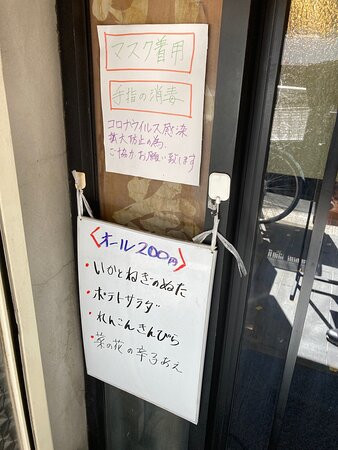 マスク着用
手指の消毒
コロナウイルス感染
拡大防止の為、
ご協力お願い致します
<オール200円>
・いかとねぎのぬた
・ポテトサラダ
・れんこんきんぴら
・菜の花の辛子あえ